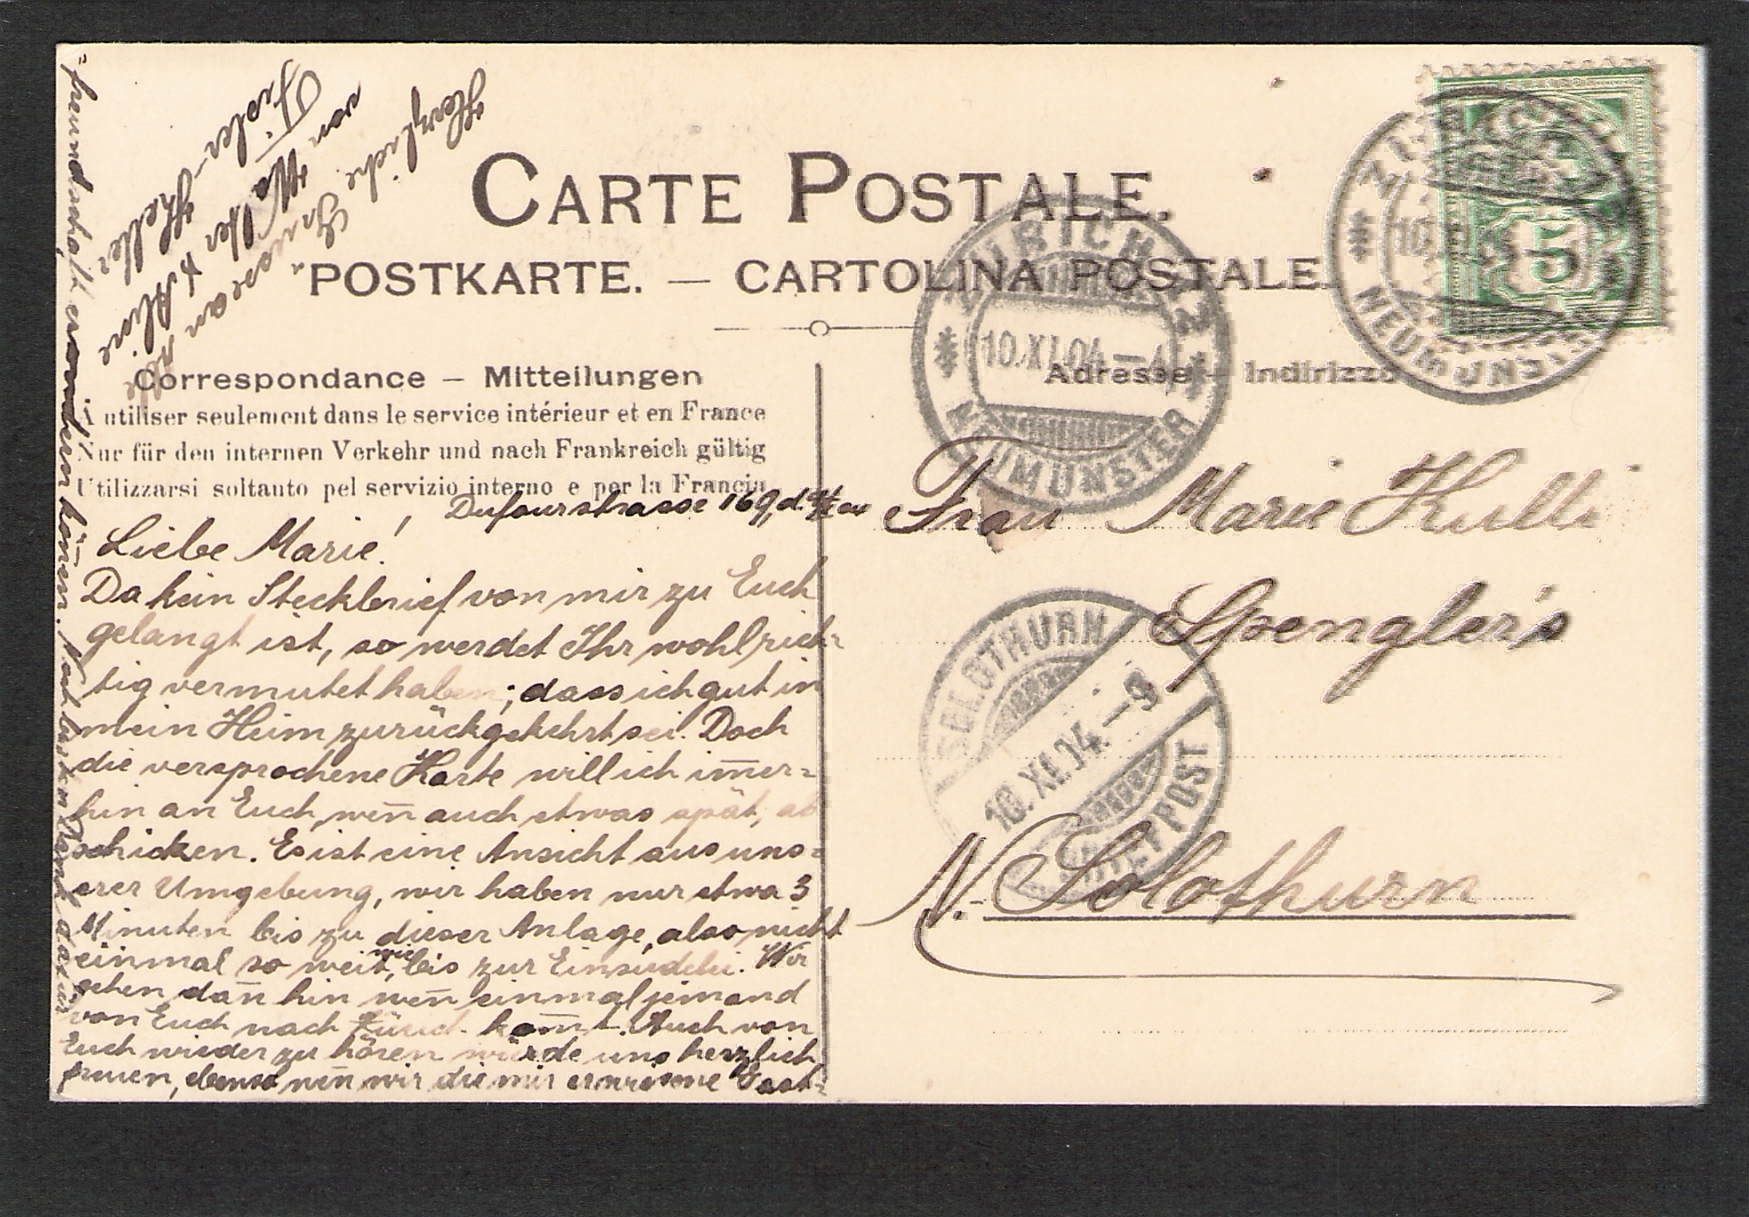 CARTE POSTALE.
POSTKARTE. — CARTOLINA POSTALE.
Correspondance — Mitteilungen
A utiliser seulement dans le service intérieur et en France
Nur für den internen Verkehr und nach Frankreich gültig
Utilizzarsi soltanto pel servizio interno e per la Francia
Adresse — Indirizzo
ZÜRICH 12
10.XI.04–4
NEUMÜNSTER
5
NEUMÜNSTER
Dufourstrasse 169, d.
Liebe Marie!
Da kein Steckbrief von mir zu Euch
gelangt ist, so werdet Ihr wohl rich-
tig vermutet haben; dass ich gut in
mein Heim zurückgekehrt sei. Doch
die versprochene Karte will ich im̄er-
hin an Euch, wen̄ auch etwas spät, ab
schicken. Es ist eine Ansicht aus uns-
erer Umgebung, wir haben nur etwa 3
Minuten bis zu dieser Anlage, also nicht
einmal so weit, wie bis zur Einsiedelei. Wir
gehen dan̄ hin wen̄ einmal jemand
von Euch nach Zürich kom̄t. Auch von
Euch wieder zu hören würde uns herzlich
freuen, ebenso wen̄ wir die mir erwiesene Gast-
-freundschaft erwidern kön̄en. Nochbesten Dank dafür
Herzliche Grüsse an alle
von Walter & Aline
-Keller
Frau Marie Kulli
Spengler's
SOLOTHURN
10.XI.04.–9
BRIEFPOST
N.-Solothurn